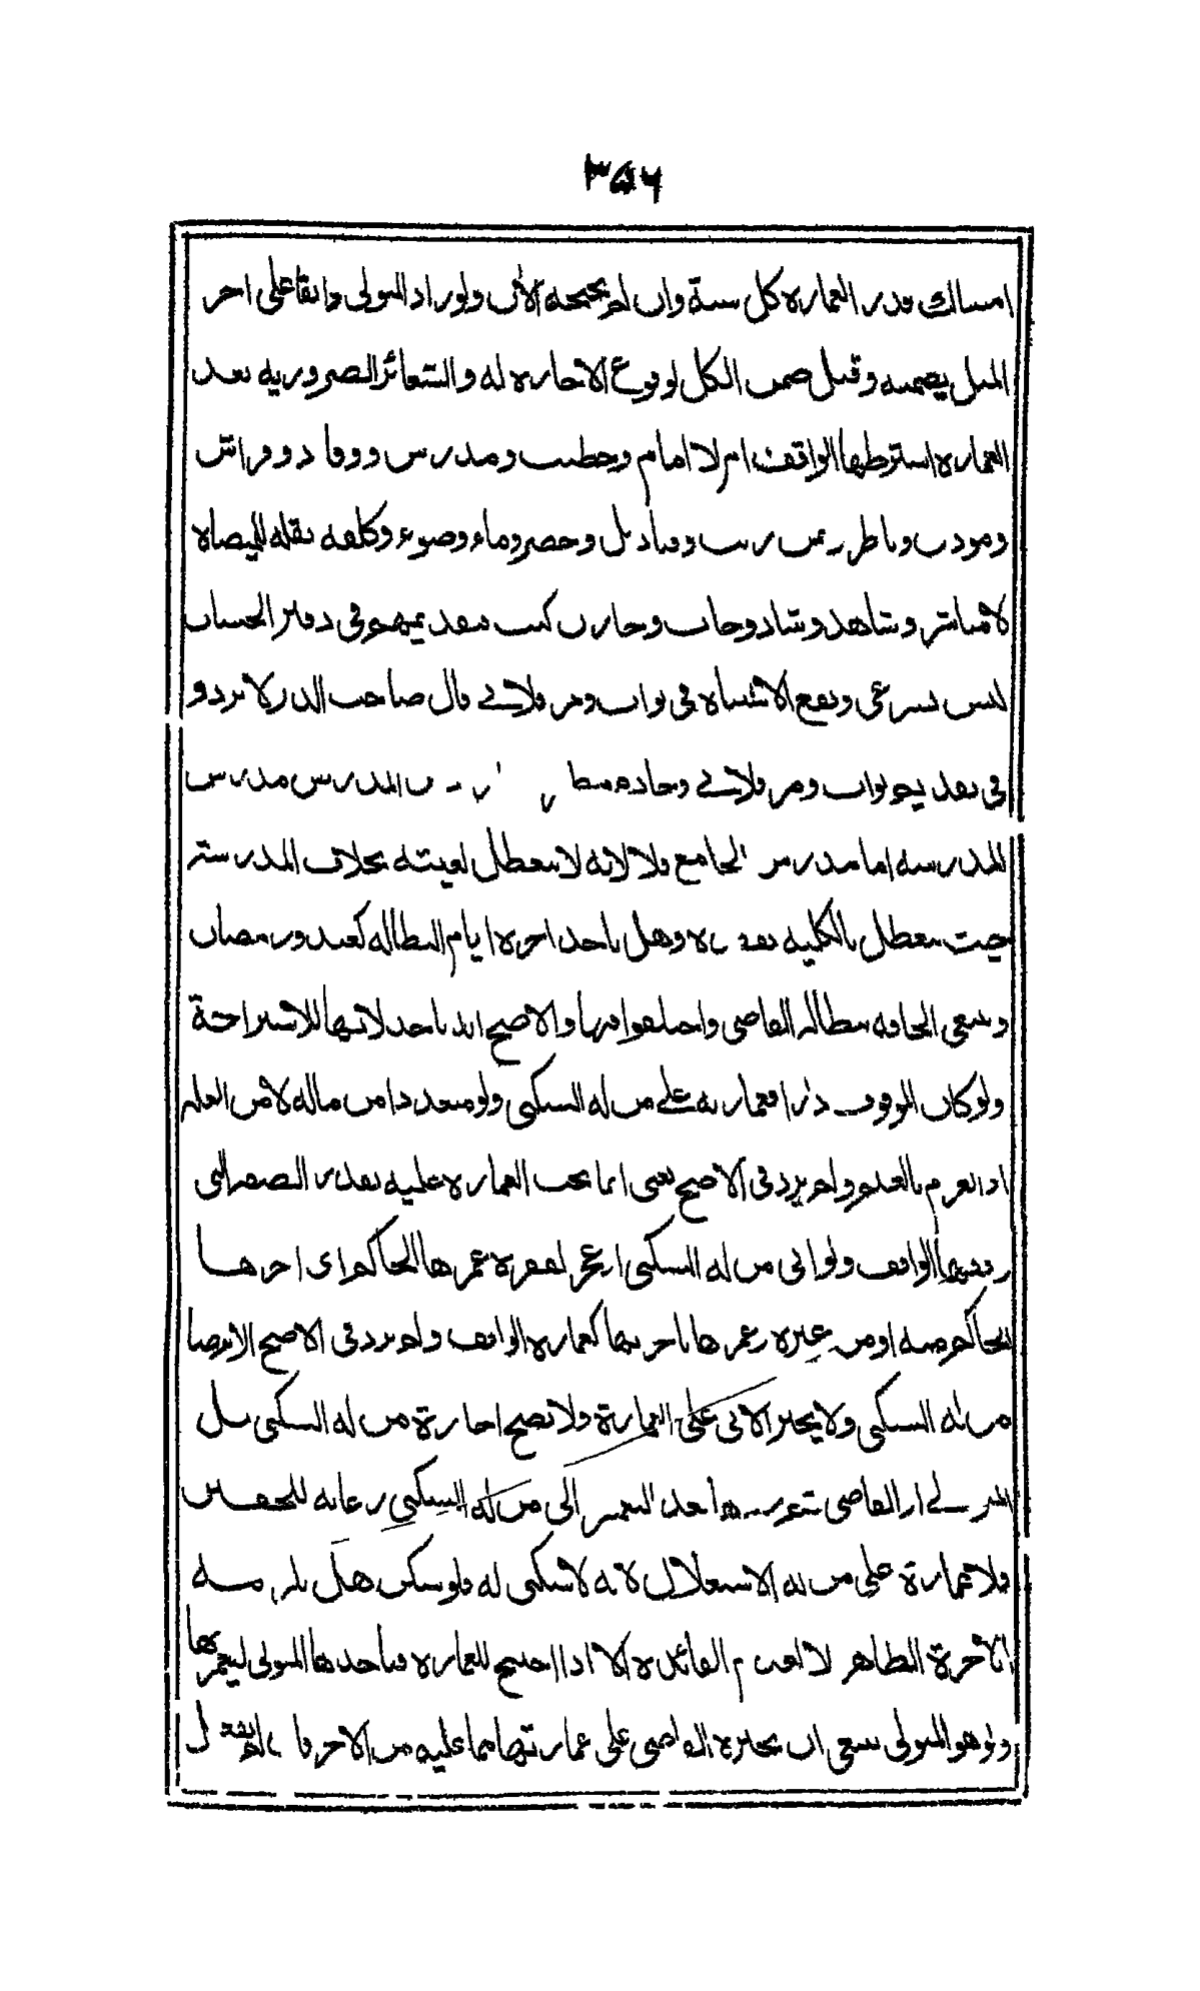 ٣٥٦
امساك قدر العمارة كل سنة وان لم يحتجه الآن ولو زاد المتولى دانقا على اجر
المثل يضمنه وقيل ضمن الكل لوقوع الاجارة له والشعائر الضرورية بعد
العمارة اشترطها الواقف ام لا امام وخطيب ومدرس ووقاد وفراش
ومؤذن وناظر ثمن زيت وقناديل وحصر وماء وضوء وكلفة نقله للميضاة
لا مباشر وشاهد وشاد وجاب وخازن كتب فتقديمهم فى دفتر المحاسبات
ليس بشرعى ويقع الاشتباه فى بواب ومزملاتى قال صاحب الدر لا تردد
فى تقديم بواب ومزملاتى وخادم مطهرة المدرس مدرس
المدرسة اما مدرس الجامع فلا لانه لا يتعطل لغيبته بخلاف المدرسة
حيث يتعطل بالكلية وهل ياخذ اجرة ايام البطالة كعيد ورمضان
وينبغى الحاقه ببطالة القاضى واختلفوا فيها والاصح انه ياخذ لانها للاستراحة
ولو كان الموقوف دارا فعمارته على من له السكنى ولو متعددا من ماله لا من الغلة
اذ الغرم بالغنم ولم يزد فى الاصح يعنى انما تجب العمارة عليه بقدر الصفة التى
وقفها الواقف ولو ابى من له السكنى او عجز لفقره عمرها الحاكم اى اجرها
الحاكم منه او من غيره وعمرها باجرتها كعمارة الواقف ولم يزد فى الاصح الا برضا
من له السكنى ولا يجبر الآبى على العمارة ولا تصح اجارة من له السكنى بل
المتولى او القاضى ثم يردها بعد التعمير الى من له السكنى رعاية للحقين
فلا عمارة على من له الاستغلال لانه لا سكنى له فلو سكن هل تلزمه
الاجرة الظاهر لا لعدم الفائدة الا اذا احتيج للعمارة فياخذها المتولى ليعمر بها
ولو هو المتولى ينبغى ان يجبره القاضى على عمارتها مما عليه من الاجر فان لم يفعل